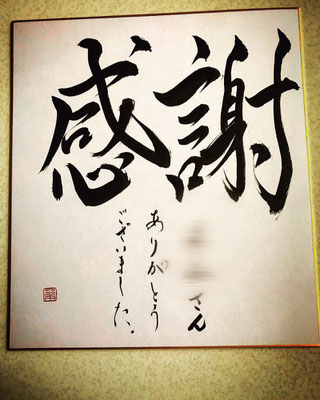 感謝
さん
ありがとう
ございました。